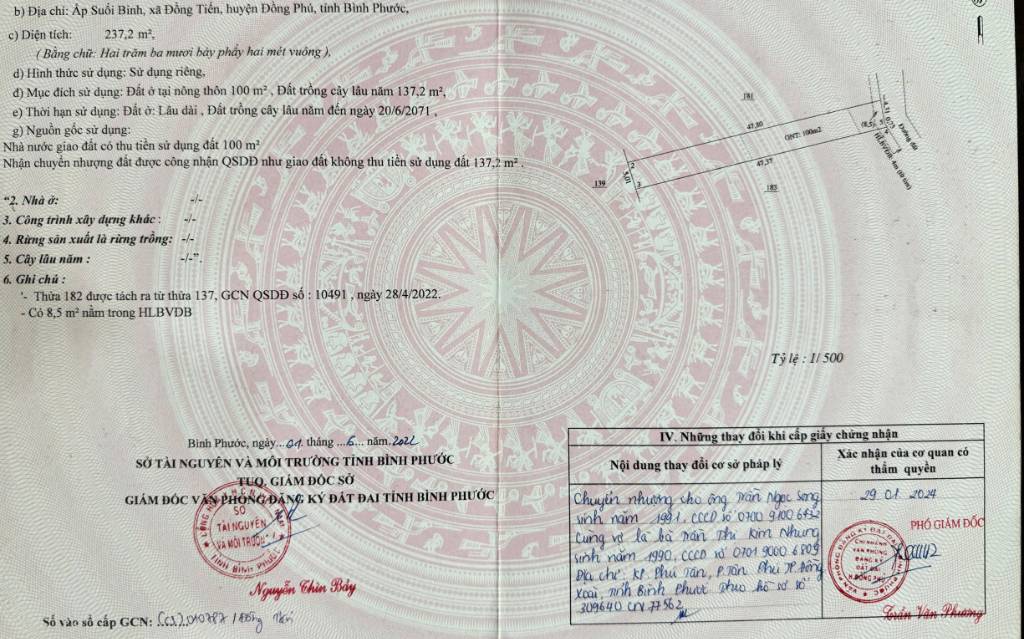 b) Địa chỉ: Ấp Suối Binh, xã Đồng Tiến, huyện Đồng Phú, tỉnh Bình Phước,
c) Diện tích: 237,2 m²,
( Bằng chữ: Hai trăm ba mươi bảy phẩy hai mét vuông ),
d) Hình thức sử dụng: Sử dụng riêng,
đ) Mục đích sử dụng: Đất ở tại nông thôn 100 m² , Đất trồng cây lâu năm 137,2 m²,
e) Thời hạn sử dụng: Đất ở: Lâu dài , Đất trồng cây lâu năm đến ngày 20/6/2071 ,
g) Nguồn gốc sử dụng:
Nhà nước giao đất có thu tiền sử dụng đất 100 m²
Nhận chuyển nhượng đất được công nhận QSDĐ như giao đất không thu tiền sử dụng đất 137,2 m² .
“2. Nhà ở: -/-
3. Công trình xây dựng khác : -/-
4. Rừng sản xuất là rừng trồng: -/-
5. Cây lâu năm : -/-”.
6. Ghi chú :
'- Thửa 182 được tách ra từ thửa 137, GCN QSDĐ số : 10491 , ngày 28/4/2022.
- Có 8,5 m² nằm trong HLBVĐB
181
47,80
ONT: 100m2
47,37
183
139
5,01
2
3
4,31
0,73
(8,5)
Đường đất
HLBVĐB 4m
Tỷ lệ : 1/ 500
Bình Phước, ngày...01. tháng ...6... năm.2022
SỞ TÀI NGUYÊN VÀ MÔI TRƯỜNG TỈNH BÌNH PHƯỚC
TUQ. GIÁM ĐỐC SỞ
GIÁM ĐỐC VĂN PHÒNG ĐĂNG KÝ ĐẤT ĐAI TỈNH BÌNH PHƯỚC
SỞ
TÀI NGUYÊN
VÀ MÔI TRƯỜNG
TỈNH BÌNH PHƯỚC
Nguyễn Thìn Bảy
Số vào sổ cấp GCN:
IV. Những thay đổi khi cấp giấy chứng nhận
Nội dung thay đổi cơ sở pháp lý
Xác nhận của cơ quan có
thẩm quyền
Chuyển nhượng cho ông Trần Ngọc Song
sinh năm 1991. CCCD số 0700 9100 6432
cùng vợ là bà Trần Thị Kim Nhung
sinh năm 1990, CCCD số 0701 9000 6809
Địa chỉ: KP. Phú Tân, P. Tân Phú TP. Đồng
Xoài, Tỉnh Bình Phước theo hồ sơ số
309640 CN 77562
29 01 2024
PHÓ GIÁM ĐỐC
CHI NHÁNH
VĂN PHÒNG
ĐĂNG KÝ
ĐẤT ĐAI
H. ĐỒNG PHÚ
Trần Văn Phương